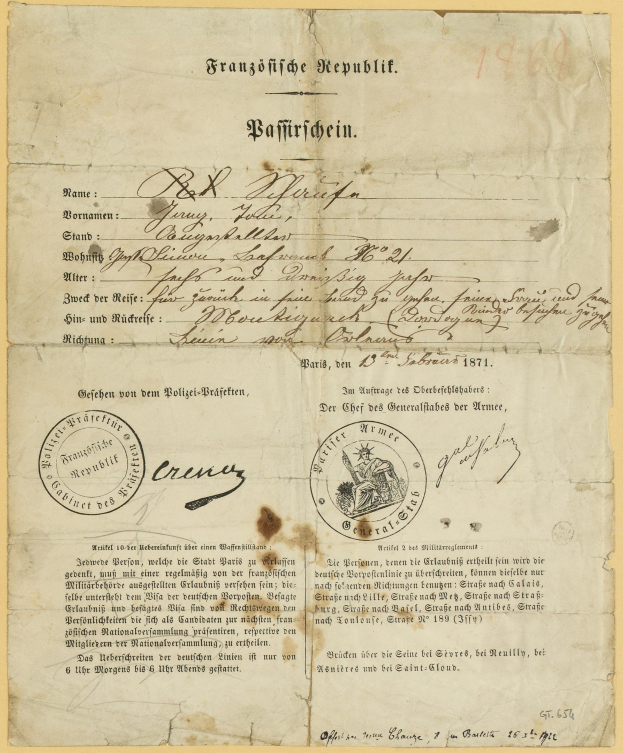 Französische Republik.
Passirschein.
Name:
Vornamen: Jean,
Stand: Angestellter
Wohnsitz No 21.
Alter: sechs und dreißig Jahr
Zweck der Reise: für zurück in seine zu gehen, seine Frau und seine
Kinder besuchen zu gehen
Hin- und Rückreise: (Dordogne)
Richtung: Linie von Orleans
Paris, den 13 Februar 1871.
Gesehen von dem Polizei-Präfekten,
Im Auftrage des Oberbefehlshabers:
Der Chef des Generalstabes der Armee,
Polizei-Präfektur
Cabinet des Präfekten
Französische
Republik
Pariser Armee
General-Stab
Artikel 10 der Uebereinkunft über einen Waffenstillstand:
Jedwede Person, welche die Stadt Paris zu verlassen
gedenkt, muß mit einer regelmäßig von der französischen
Militärbehörde ausgestellten Erlaubniß versehen sein; die-
selbe untersteht dem Visa der deutschen Vorposten. Besagte
Erlaubniß und besagtes Visa sind von Rechtswegen den
Persönlichkeiten die sich als Candidaten zur nächsten fran-
zösischen Nationalversammlung präsentiren, respective den
Mitgliedern der Nationalversammlung, zu ertheilen.
Das Ueberschreiten der deutschen Linien ist nur von
6 Uhr Morgens bis 6 Uhr Abends gestattet.
Artikel 2 des Militärreglements:
Die Personen, denen die Erlaubniß ertheilt sein wird die
deutsche Vorpostenlinie zu überschreiten, können dieselbe nur
nach folgenden Richtungen benutzen: Straße nach Calais,
Straße nach Lille, Straße nach Metz, Straße nach Straß-
burg, Straße nach Basel, Straße nach Antibes, Straße
nach Toulouse, Straße No 189 (Issy)
Brücken über die Seine bei Sèvres, bei Neuilly, bei
Asnières und bei Saint-Cloud.
GT. 654
Offert par 1922